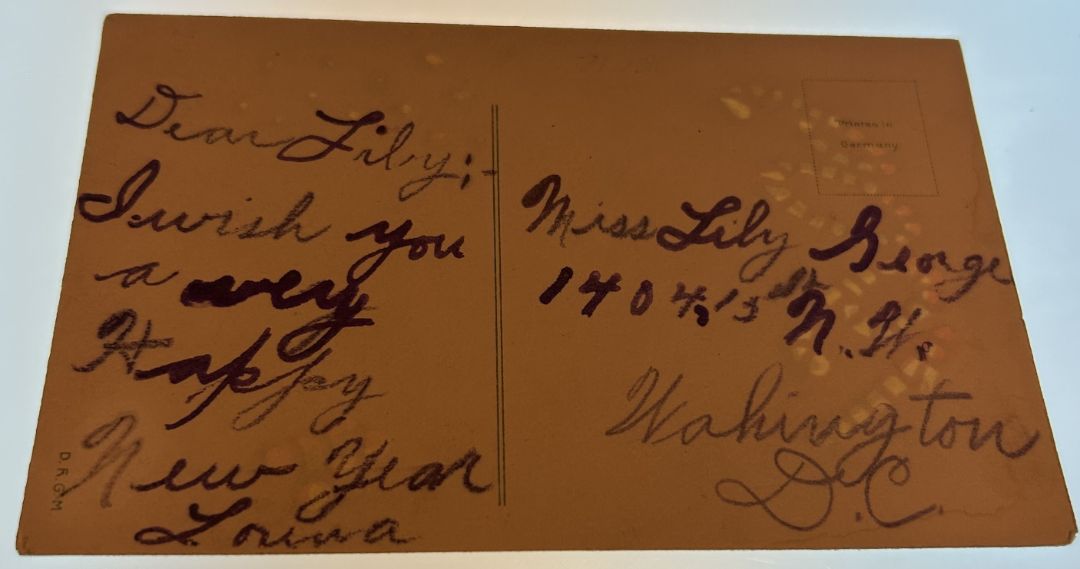 Dear Lily;-
I wish you
a very
Happy
New Year
Louva
D.R.G.M
Printed in
Germany
Miss Lily George
1404, 13 St
N.W.
Wahington
D.C.